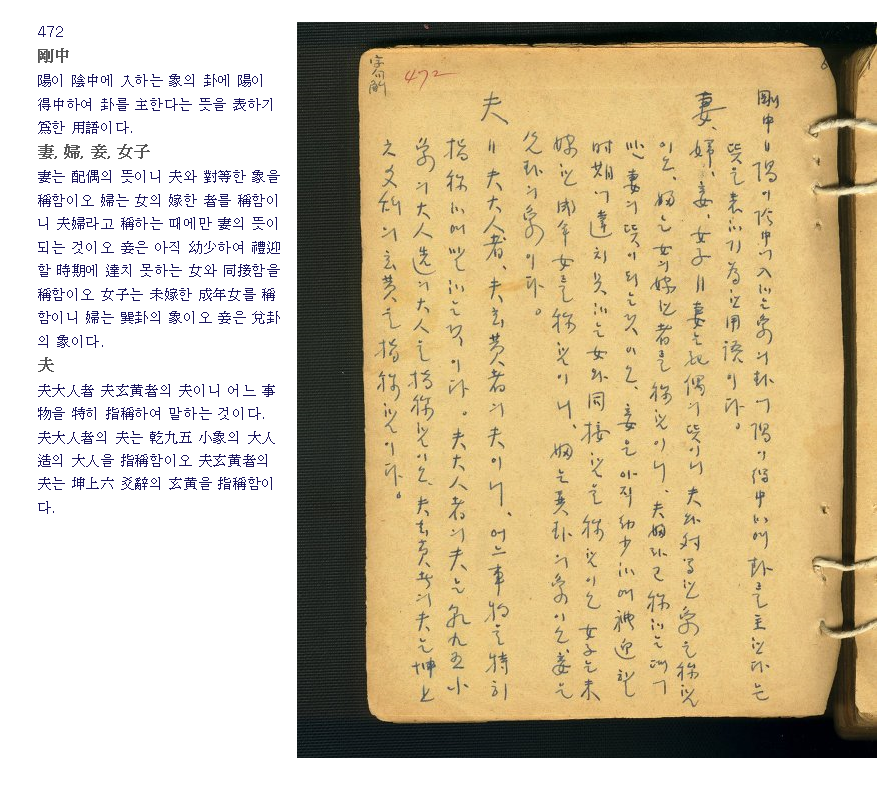 472
剛中
陽이 陰中에 入하는 象의 卦에 陽이
得中하여 卦를 主한다는 뜻을 表하기
爲한 用語이다.
妻, 婦, 妾, 女子
妻는 配偶의 뜻이니 夫와 對等한 象을
稱함이오 婦는 女의 嫁한 者를 稱함이
니 夫婦라고 稱하는 때에만 妻의 뜻이
되는 것이오 妾은 아직 幼少하여 禮迎
할 時期에 達치 못하는 女와 同接함을
稱함이오 女子는 未嫁한 成年女를 稱
함이니 婦는 巽卦의 象이오 妾은 兌卦
의 象이다.
夫
夫大人者 夫玄黃者의 夫이니 어느 事
物을 特히 指稱하여 말하는 것이다.
夫大人者의 夫는 乾九五 小象의 大人
造의 大人을 指稱함이오 夫玄黃者의
夫는 坤上六 爻辭의 玄黃을 指稱함이
다.
字句解
472
剛中 〃 陽이 陰中에 入하는 象의 卦에 陽이 得中하여 卦를 主한다는
뜻을 表하기 爲한 用語이다。
妻、婦、妾、女子 〃 妻는 配偶의 뜻이니 夫와 對等한 象을 稱함
이오、婦는 女의 嫁한 者를 稱함이니、夫婦라고 稱하는 때에
만 妻의 뜻이 되는 것이오、妾은 아직 幼少하여 禮迎할
時期에 達치 못하는 女와 同接함을 稱함이오 女子는 未
嫁한 成年女를 稱함이니、婦는 巽卦의 象이오、妾은
兌卦의 象이다。
夫 〃 夫大人者、夫玄黃者의 夫이니、어느 事物을 特히
指稱하여 말하는 것이다。夫大人者의 夫는 乾九五 小
象의 大人造의 大人을 指稱함이오、夫玄黃者의 夫는 坤上
六 爻辭의 玄黃을 指稱함이다。